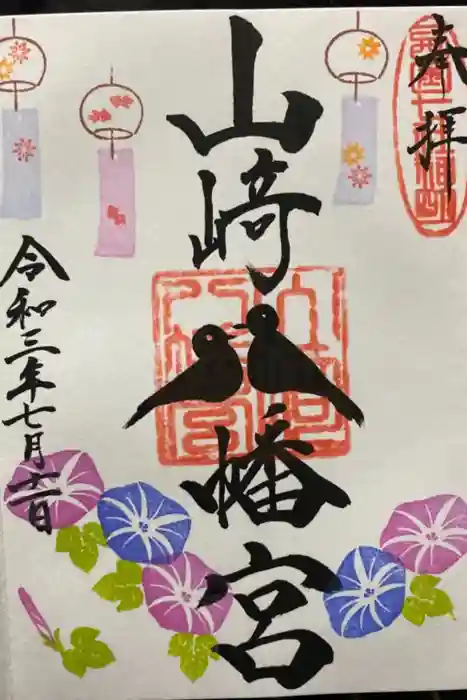 奉拝
山崎八幡宮
令和三年七月十一日